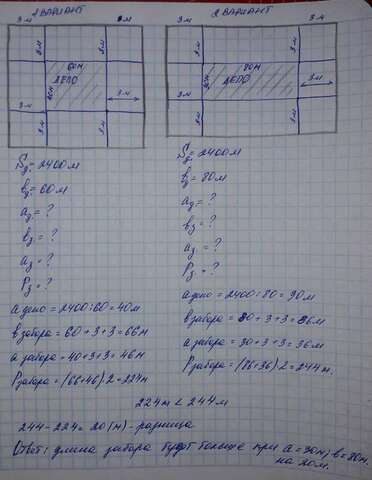 1 ВАРИАНТ
2 ВАРИАНТ
3 м
3 м
3 м
3 м
3 м
3 м
60м
ДЕПО
40м
3 м
3 м
3 м
3 м
3 м
3 м
80м
30м
ДЕПО
3м
3м
3м
3м
Sд = 2400м
вд = 60м
aд = ?
вз = ?
aз = ?
Pз = ?
a депо = 2400:60 = 40м
в забора = 60+3+3 = 66м
a забора = 40+3+3 = 46м
P забора = (66+46)·2 = 224м
Sд = 2400м
вд = 80м
aд = ?
вз = ?
aз = ?
Pз = ?
a депо = 2400:80 = 30м
в забора = 80+3+3 = 86м
a забора = 30+3+3 = 36м
P забора = (86+36)·2 = 244м.
224м < 244м
244-224 = 20(м) - разница
Ответ: длина забора будет больше при a = 30м, в = 80м.
на 20м.